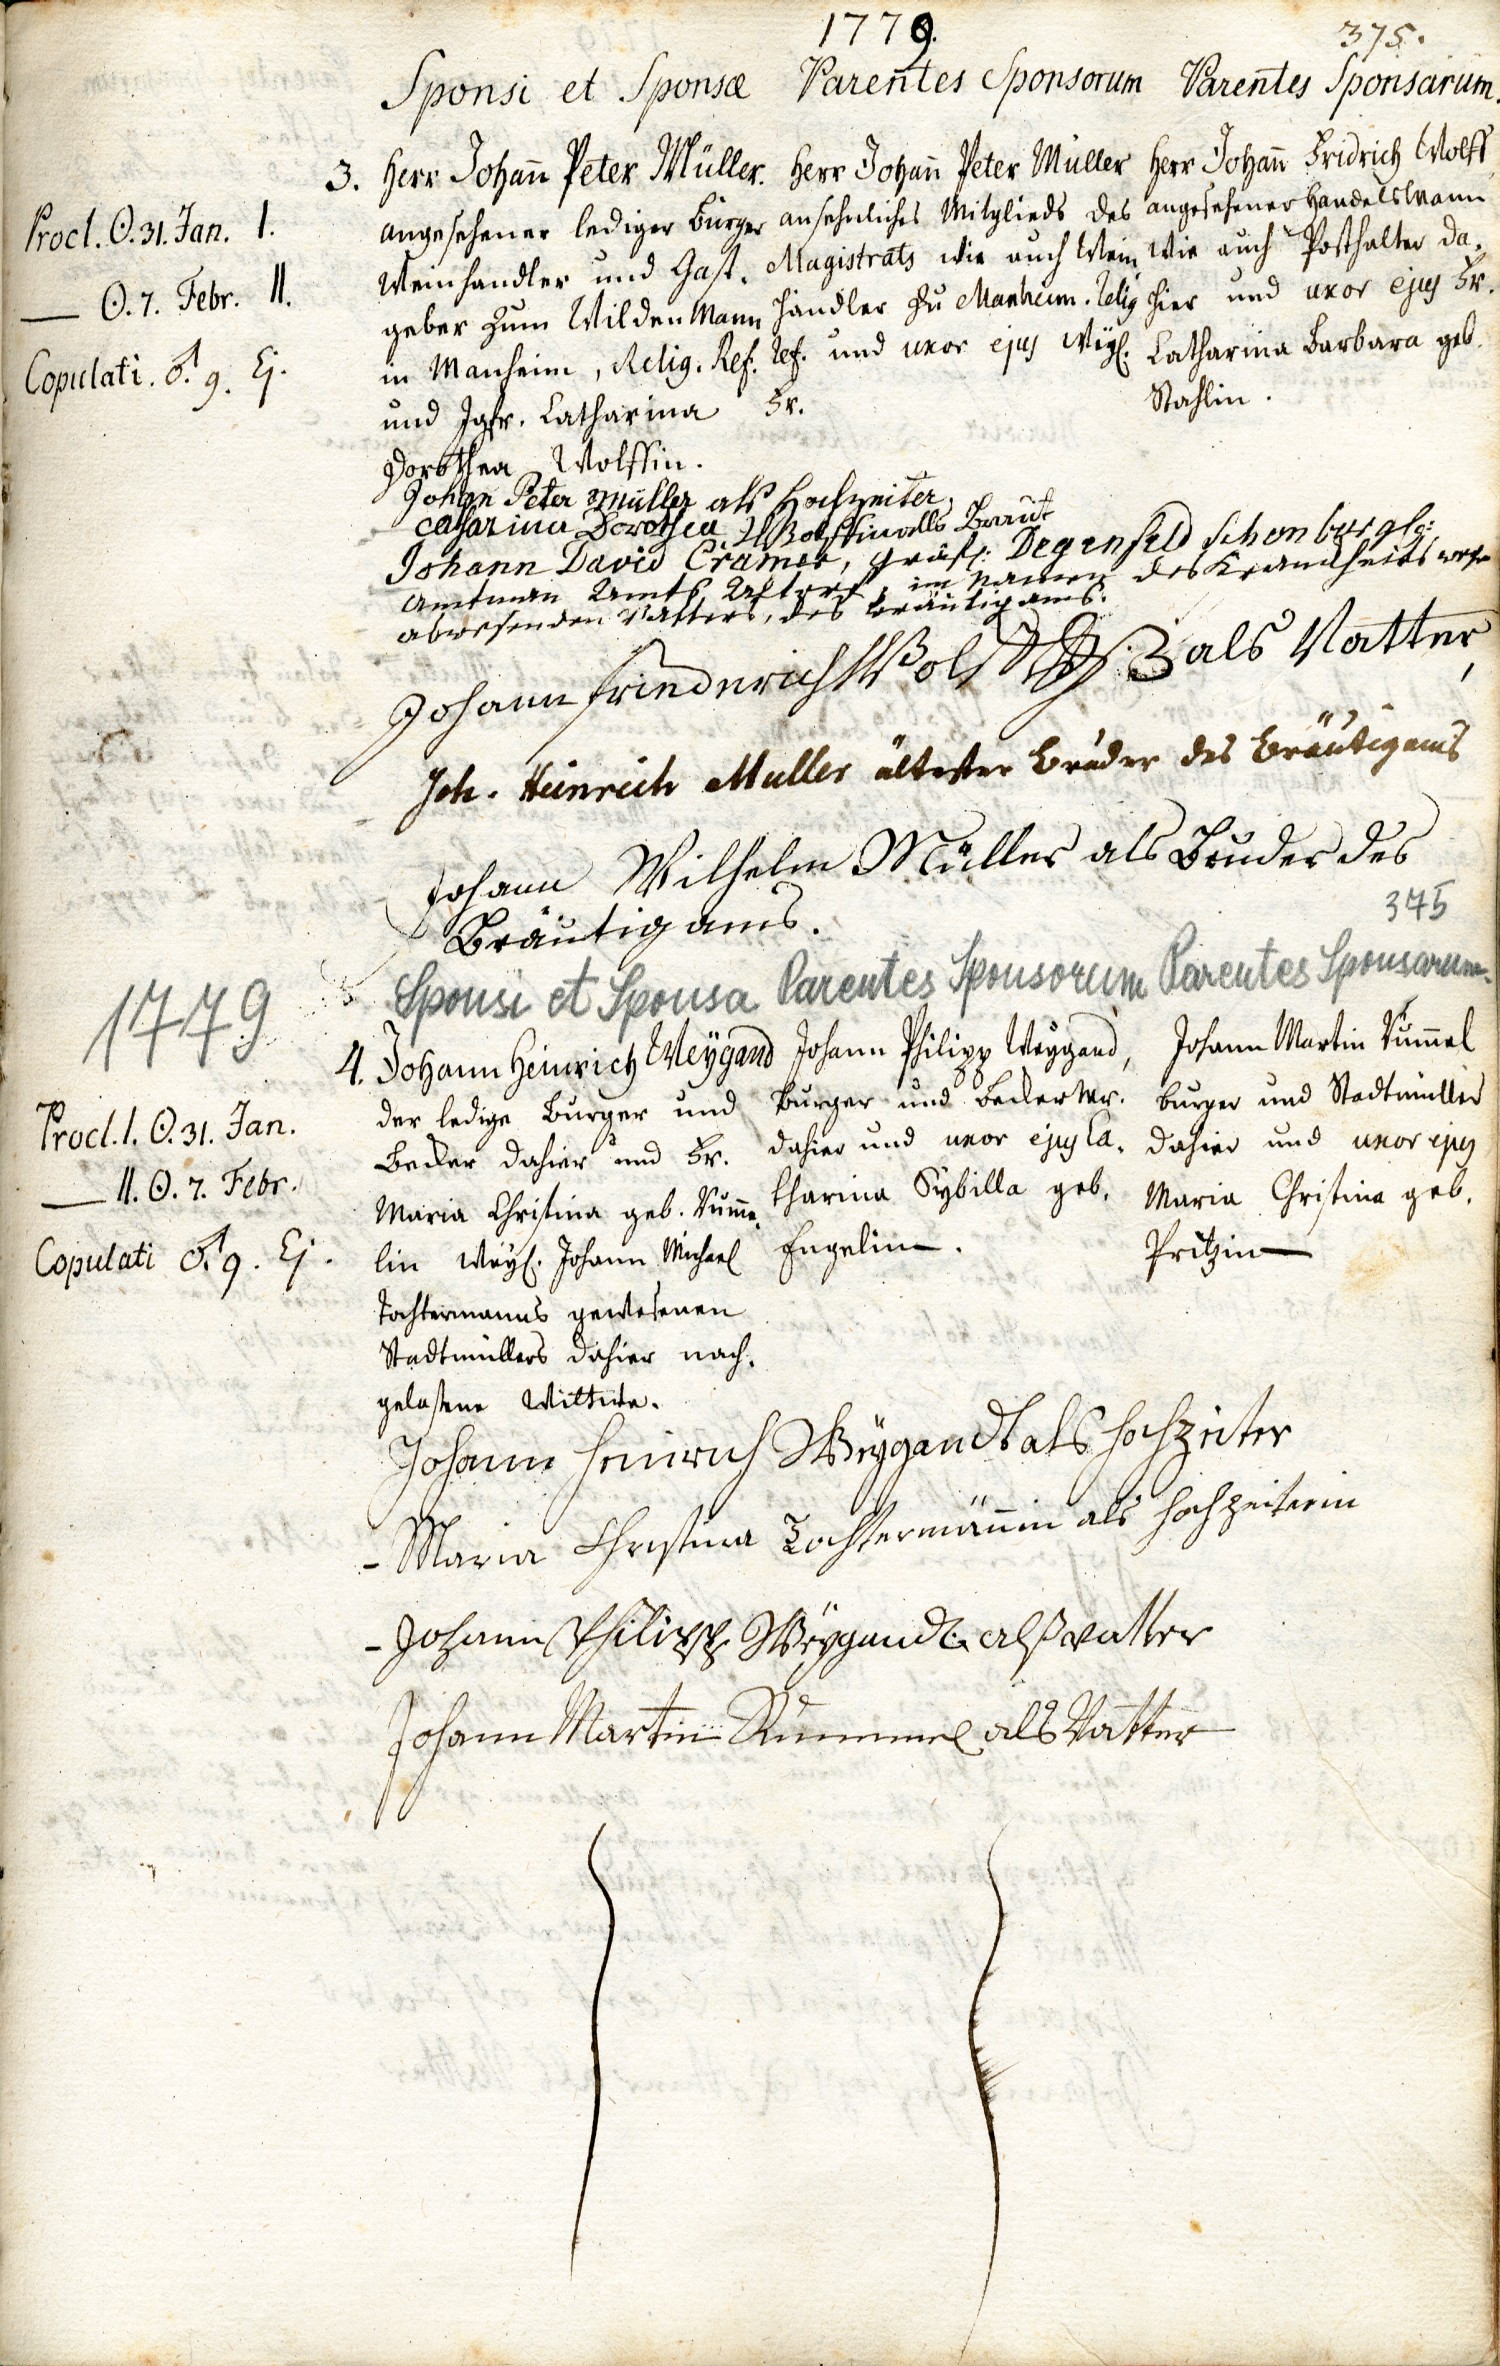 1779.
375.
Sponsi et Sponsæ
Parentes Sponsorum
Parentes Sponsarum.
Procl. ☉. 31. Jan. I.
— ☉. 7. Febr. II.
Copulati. ♂. 9. Ej.
3. Herr Johañ Peter Müller.
angesehener lediger Burger
Weinhandler und Gast-
geber zum Wilden Mann
in Manheim, Relig. Ref.
und Jgfr. Catharina
Dorothea Wolffin.
Herr Johañ Peter Müller
ansehnliches Mitglieds des
Magistrats wie auch Wein
händler zu Manheim. Relig
Ref. und uxor ejus Weyl.
Fr.
Herr Johañ Fridrich Wolff
angesehener Handelsmann
wie auch Posthalter da-
hier und uxor ejus Fr.
Catharina Barbara geb.
Stahlin.
Johann Peter Müller als Hochzeiter,
Catharina Dorothea Wolffin alls Braut
Johann David Cramer, gräfl: Degenfeld Schonburgl:
Amtman im Namen des Krankheits
abwesenden Vatters, des Bräutigams.
Johann Friederich Wolff als Vatter,
Joh. Heinrich Muller ältester Bruder des Bräutigams
Johann Wilhelm Müller als Bruder des
Bräutigams.
375
1779
Sponsi et Sponsa
Parentes Sponsorum
Parentes Sponsarum.
Procl. I. ☉. 31. Jan.
— II. ☉. 7. Febr.
Copulati ♂. 9. Ej.
4. Johann Heinrich Weygand
der ledige Burger und
Becker dahier und Fr.
Maria Christina geb. Rumme-
lin Weyl. Johann Michael
Tochtermanns gewesenen
Stadtmüllers dahier nach-
gelaßene Wittwe.
Johann Philipp Weygand,
Burger und Becker Mr.
dahier und uxor ejus Ca-
tharina Sybilla geb.
Engelin.
Johann Martin Rum̄el
burger und Stadtmüller
dahier und uxor ejus
Maria Christina geb.
Pritzin
Johann Heinrich Weygandt als Hochzeiter
- Maria Christina Tochtermäñin als Hochzeiterin
- Johann Philipp Weygandt alß vatter
Johann Martin Rummel als Vatter